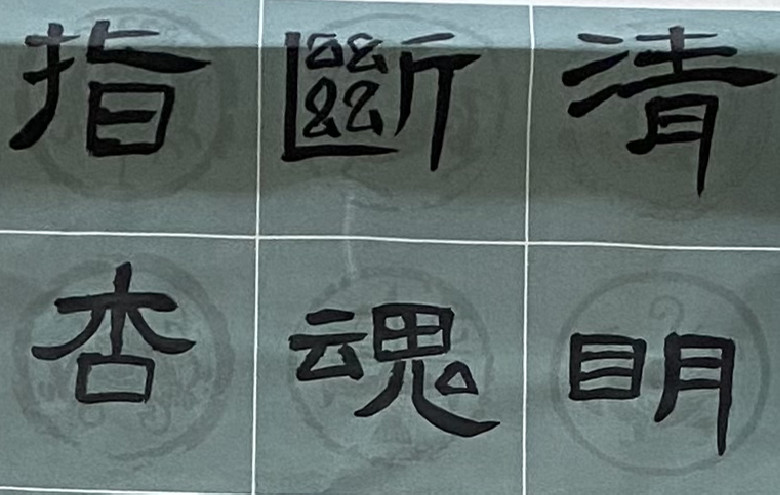 清明
斷魂
指杏